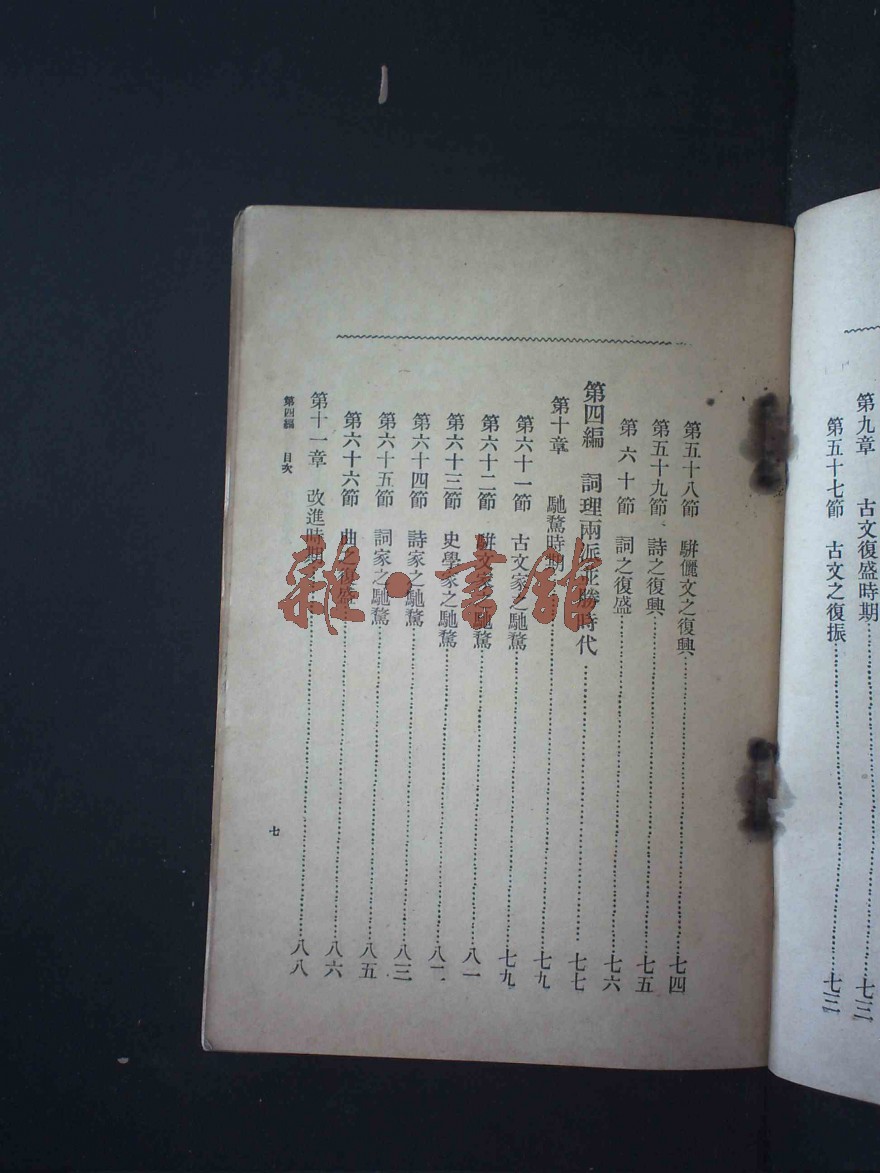 第九章　古文復盛時期……七三
第五十七節　古文之復振……七三
第五十八節　駢儷文之復興……七四
第五十九節　詩之復興……七五
第六十節　詞之復盛……七六
第四編　詞理兩派並勝時代……七七
第十章　馳騖時期……七九
第六十一節　古文家之馳騖……七九
第六十二節　駢文家之馳騖……八一
第六十三節　史學家之馳騖……八二
第六十四節　詩家之馳騖……八三
第六十五節　詞家之馳騖……八五
第六十六節　曲之復盛……八六
第十一章　改進時期……八八
第四編　目次
七
雜·書館